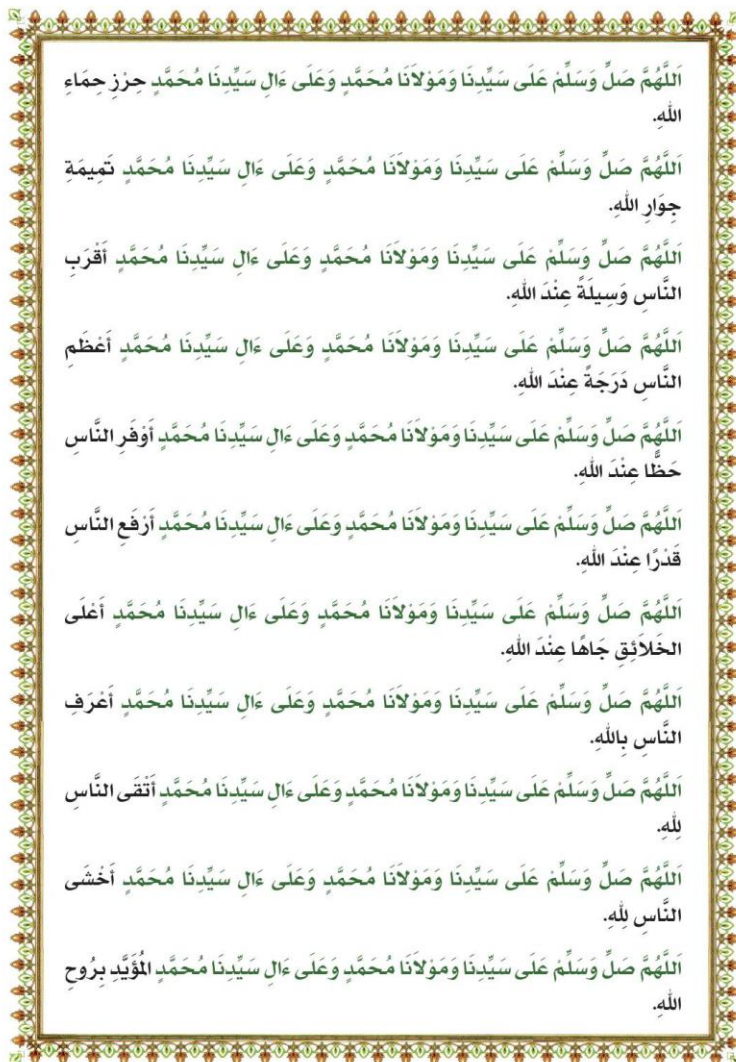 اَللَّهُمَّ صَلِّ وَسَلِّمْ عَلَى سَيِّدِنَا وَمَوْلَانَا مُحَمَّدٍ وَعَلَى ءَالِ سَيِّدِنَا مُحَمَّدٍ حِرْزِ حِمَاءِ
اللهِ.
اَللَّهُمَّ صَلِّ وَسَلِّمْ عَلَى سَيِّدِنَا وَمَوْلَانَا مُحَمَّدٍ وَعَلَى ءَالِ سَيِّدِنَا مُحَمَّدٍ تَمِيمَةِ
جِوَارِ اللهِ.
اَللَّهُمَّ صَلِّ وَسَلِّمْ عَلَى سَيِّدِنَا وَمَوْلَانَا مُحَمَّدٍ وَعَلَى ءَالِ سَيِّدِنَا مُحَمَّدٍ أَقْرَبِ
النَّاسِ وَسِيلَةً عِنْدَ اللهِ.
اَللَّهُمَّ صَلِّ وَسَلِّمْ عَلَى سَيِّدِنَا وَمَوْلَانَا مُحَمَّدٍ وَعَلَى ءَالِ سَيِّدِنَا مُحَمَّدٍ أَعْظَمِ
النَّاسِ دَرَجَةً عِنْدَ اللهِ.
اَللَّهُمَّ صَلِّ وَسَلِّمْ عَلَى سَيِّدِنَا وَمَوْلَانَا مُحَمَّدٍ وَعَلَى ءَالِ سَيِّدِنَا مُحَمَّدٍ أَوْفَرِ النَّاسِ
حَظًّا عِنْدَ اللهِ.
اَللَّهُمَّ صَلِّ وَسَلِّمْ عَلَى سَيِّدِنَا وَمَوْلَانَا مُحَمَّدٍ وَعَلَى ءَالِ سَيِّدِنَا مُحَمَّدٍ أَرْفَعِ النَّاسِ
قَدْرًا عِنْدَ اللهِ.
اَللَّهُمَّ صَلِّ وَسَلِّمْ عَلَى سَيِّدِنَا وَمَوْلَانَا مُحَمَّدٍ وَعَلَى ءَالِ سَيِّدِنَا مُحَمَّدٍ أَعْلَى
الخَلَائِقِ جَاهًا عِنْدَ اللهِ.
اَللَّهُمَّ صَلِّ وَسَلِّمْ عَلَى سَيِّدِنَا وَمَوْلَانَا مُحَمَّدٍ وَعَلَى ءَالِ سَيِّدِنَا مُحَمَّدٍ أَعْرَفِ
النَّاسِ بِاللهِ.
اَللَّهُمَّ صَلِّ وَسَلِّمْ عَلَى سَيِّدِنَا وَمَوْلَانَا مُحَمَّدٍ وَعَلَى ءَالِ سَيِّدِنَا مُحَمَّدٍ أَتْقَى النَّاسِ
لِلّٰهِ.
اَللَّهُمَّ صَلِّ وَسَلِّمْ عَلَى سَيِّدِنَا وَمَوْلَانَا مُحَمَّدٍ وَعَلَى ءَالِ سَيِّدِنَا مُحَمَّدٍ أَخْشَى
النَّاسِ لِلّٰهِ.
اَللَّهُمَّ صَلِّ وَسَلِّمْ عَلَى سَيِّدِنَا وَمَوْلَانَا مُحَمَّدٍ وَعَلَى ءَالِ سَيِّدِنَا مُحَمَّدٍ المُؤَيَّدِ بِرُوحِ
اللهِ.